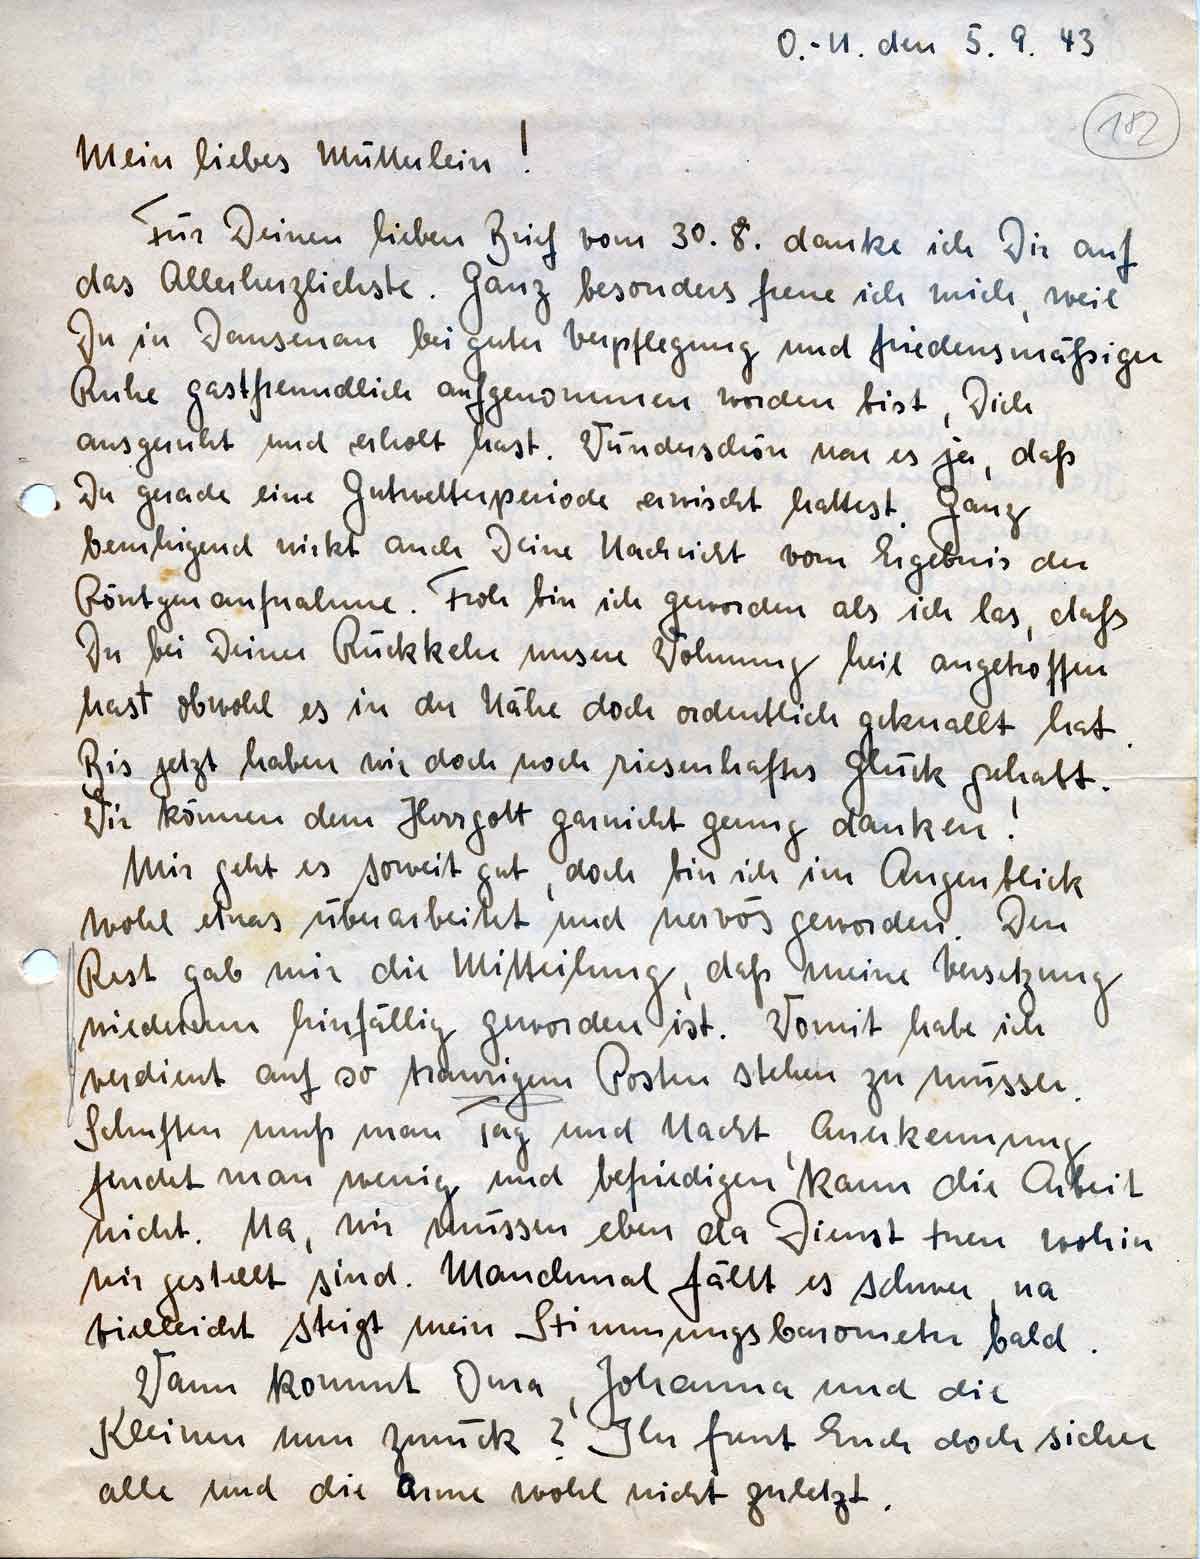 O.-U. den 5. 9. 43
182
Mein liebes Mütterlein!
Für Deinen lieben Brief vom 30. 8. danke ich Dir auf
das Allerherzlichste. Ganz besonders freue ich mich, weil
Du in Dausenau bei guter Verpflegung und friedensmäßiger
Ruhe gastfreundlich aufgenommen worden bist, Dich
ausgeruht und erholt hast. Wunderschön war es ja, daß
Du gerade eine Gutwetterperiode erwischt hattest. Ganz
beruhigend wirkt auch Deine Nachricht vom Ergebnis der
Röntgenaufnahme. Froh bin ich geworden als ich las, daß
Du bei Deiner Rückkehr unsere Wohnung heil angetroffen
hast obwohl es in der Nähe doch ordentlich geknallt hat.
Bis jetzt haben wir doch noch riesenhaftes Glück gehabt.
Wir können dem Herrgott garnicht genug danken!
Mir geht es soweit gut, doch bin ich im Augenblick
wohl etwas überarbeitet und nervös geworden. Den
Rest gab mir die Mitteilung, daß meine Versetzung
wiederum hinfällig geworden ist. Womit habe ich
verdient auf so traurigem Posten stehen zu müssen.
Schuften muß man Tag und Nacht, Anerkennung
findet man wenig und befriedigen kann die Arbeit
nicht. Na, wir müssen eben da Dienst tuen wohin
wir gestellt sind. Manchmal fällt es schwer, na
vielleicht steigt mein Stimmungsbarometer bald.
Wann kommt Oma, Johanna und die
Kleinen nun zurück? Ihr freut Euch doch sicher
alle und die arme wohl nicht zuletzt.